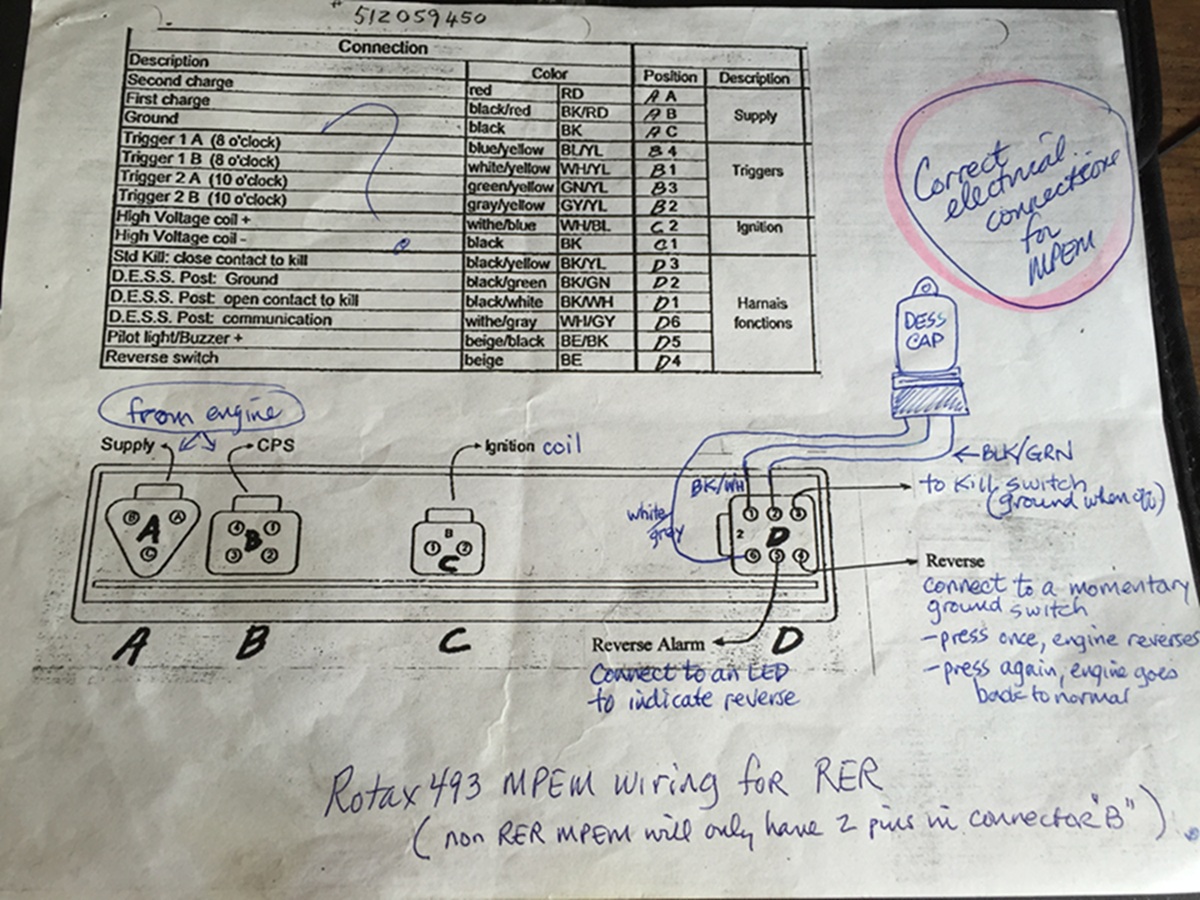 # 512059450
Connection
Description Color Position Description
Second charge red RD A A
First charge black/red BK/RD A B Supply
Ground black BK A C
Trigger 1 A (8 o'clock) blue/yellow BL/YL B 4
Trigger 1 B (8 o'clock) white/yellow WH/YL B 1 Triggers
Trigger 2 A (10 o'clock) green/yellow GN/YL B 3
Trigger 2 B (10 o'clock) gray/yellow GY/YL B 2
High Voltage coil + withe/blue WH/BL C 2 Ignition
High Voltage coil - black BK C 1
Std Kill: close contact to kill black/yellow BK/YL D 3
D.E.S.S. Post: Ground black/green BK/GN D 2
D.E.S.S. Post: open contact to kill black/white BK/WH D 1 Harnais
D.E.S.S. Post: communication withe/gray WH/GY D6 fonctions
Pilot light/Buzzer + beige/black BE/BK D5
Reverse switch beige BE D4
Correct
electrical
connections
for
MPEM
DESS
CAP
from engine
Supply CPS Ignition coil
BLK/GRN
BK/WH
to Kill switch
(ground when off)
white/
gray
B A
A
C
4 1
B
3 2
B
1 2
C
1 2 3
2 D
6 5 4
Reverse
connect to a momentary
ground switch
- press once, engine reverses
- press again, engine goes
back to normal
A B C D
Reverse Alarm
Connect to an LED
to indicate reverse
Rotax 493 MPEM wiring for RER
(non RER MPEM will only have 2 pins in connector "B")